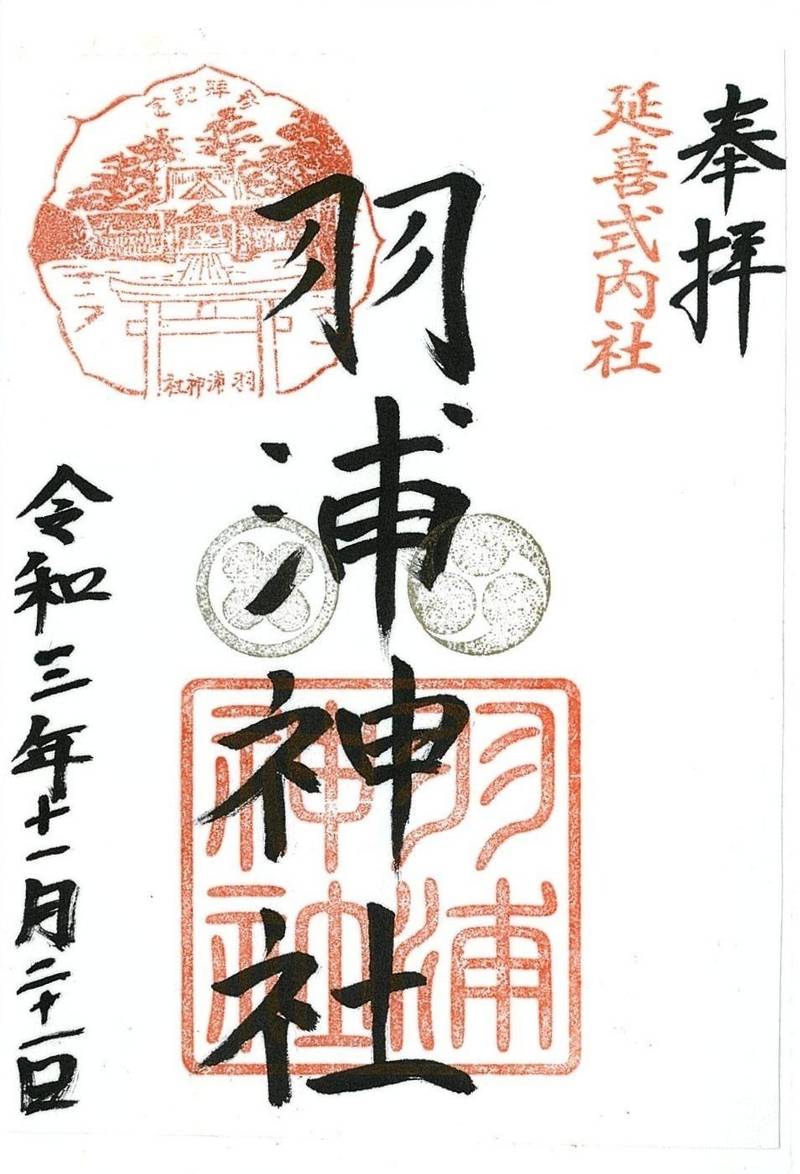 奉拝
延喜式内社
羽浦神社
羽浦神社
参拝記念
羽浦神社
令和三年十一月二十一日